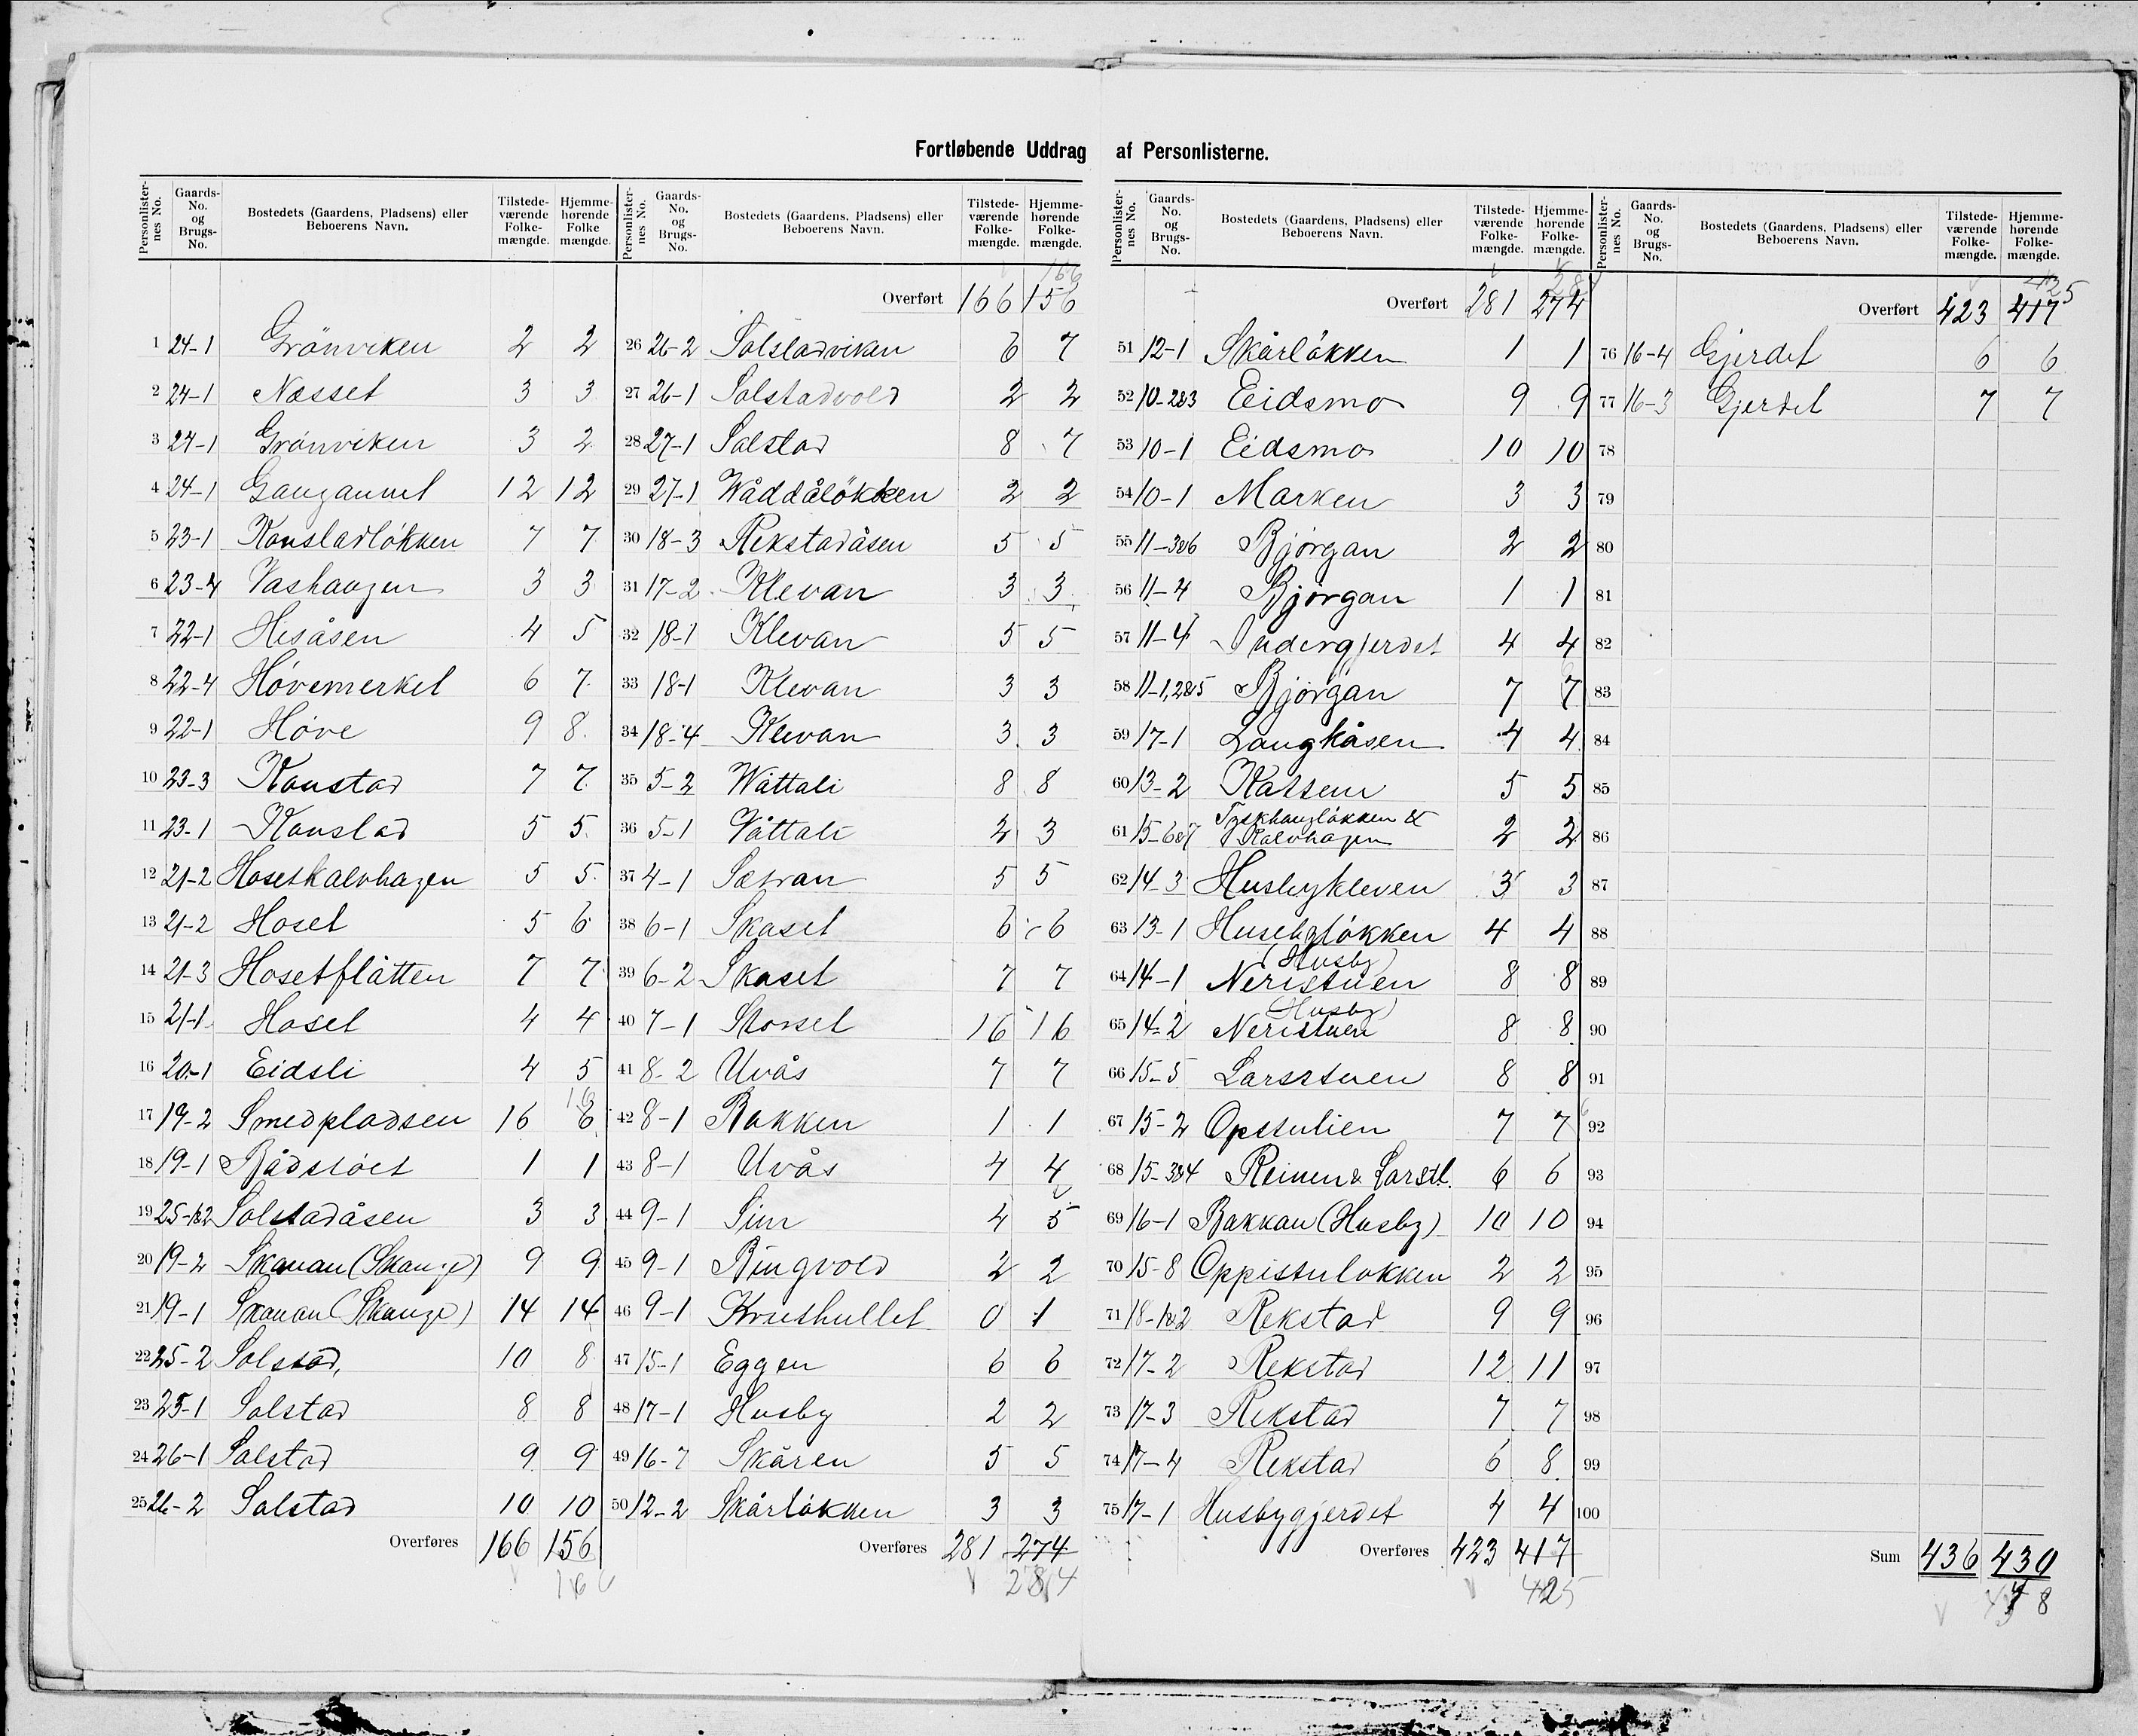 Fortløbende Uddrag af Personlisterne.
Personlister-nes No. Gaards-No. og Brugs-No. Bostedets (Gaardens, Pladsens) eller Beboerens Navn. Tilstede-værende Folke-mængde. Hjemme-hørende Folke mængde.
1 24-1 Grönviken 2 2
2 24-1 Næsset 3 3
3 24-1 Grönviken 3 2
4 24-1 12 12
5 23-1 Konstadlökken 7 7
6 23-4 Vashaugen 3 3
7 22-1 Hesåsen 4 5
8 22-4 Hövemerket 6 7
9 22-1 Höve 9 8
10 23-3 Konstad 7 7
11 23-1 Konstad 5 5
12 21-2 Hosetkalvhagen 5 5
13 21-2 Hoset 5 6
14 21-3 Hosetflåtten 7 7
15 21-1 Hoset 4 4
16 20-1 Eidsli 4 5
17 19-2 Smedpladsen 16 6 16
18 19-1 Bådstöet 1 1
19 25-1&2 Solstadåsen 3 3
20 19-2 Skanan (Skauge) 9 9
21 19-1 Skanan (Skauge) 14 14
22 25-2 Solstad, 10 8
23 25-1 Solstad 8 8
24 26-1 Solstad 9 9
25 26-2 Solstad 10 10
Overføres 166 156
166
Personlister-nes No. Gaards-No. og Brugs-No. Bostedets (Gaardens, Pladsens) eller Beboerens Navn. Tilstede-værende Folke-mængde. Hjemme-hørende Folke-mængde.
166
Overført 166 156
26 26-2 Solstadviken 6 7
27 26-1 Solstadvold 2 2
28 27-1 Solstad 8 7
29 27-1 Wåddålökken 2 2
30 18-3 Rekstadåsen 5 5
31 17-2 Klevan 3 3
32 18-1 Klevan 5 5
33 18-1 Klevan 3 3
34 18-4 Klevan 3 3
35 5-2 Wåttali 8 8
36 5-1 Våttali 2 3
37 4-1 Sætran 5 5
38 6-1 Skaset 6 6
39 6-2 Skaset 7 7
40 7-1 Storset 16 16
41 8-2 Uvås 7 7
42 8-1 Bakken 1 1
43 8-1 Uvås 4 4
44 9-1 Sim 4 5
45 9-1 Ringvold 2 2
46 9-1 Kruthullet 0 1
47 15-1 Eggen 6 6
48 17-1 Husby 2 2
49 16-7 Skåren 5 5
50 12-2 Skårlökken 3 3
Overføres 281 274
284
Personlister-nes No. Gaards-No. og Brugs-No. Bostedets (Gaardens, Pladsens) eller Beboerens Navn. Tilstede-værende Folke-mængde. Hjemme-hørende Folke-mængde.
Overført 281 274
51 12-1 Skårlökken 1 1
52 10-2&3 Eidsmo 9 9
53 10-1 Eidsmo 10 10
54 10-1 Marken 3 3
55 11-3&6 Bjørgan 2 2
56 11-4 Bjørgan 1 1
57 11-4 4 4
58 11-1,2&5 Bjørgan 7 7
59 17-1 Langhåsen 4 4
60 13-2 Kassem 5 5
61 15-6&7 Tyskhauglökken &
Kalvhagen 2 2
62 14-3 Husbykleven 3 3
63 13-1 Husebylökken 4 4
(Husby)
64 14-1 Neristuen 8 8
(Husby)
65 14-2 Neristuen 8 8
66 15-5 Larsstuen 8 8
67 15-2 Opstulien 7 7
68 15-3&4 Reinen & Larsst. 6 6
69 16-1 Bakkan (Husby) 10 10
70 15-8 Oppistulokken 2 2
71 18-1&2 Rekstad 9 9
72 17-2 Rekstad 12 11
73 17-3 Rekstad 7 7
74 17-4 Rekstad 6 8
75 17-1 Husbygjerdet 4 4
Overføres 423 417
425
Personlister-nes No. Gaards-No. og Brugs-No. Bostedets (Gaardens, Pladsens) eller Beboerens Navn. Tilstede-værende Folke-mængde. Hjemme-hørende Folke-mængde.
425
Overført 423 417
76 16-4 Gjerdet 6 6
77 16-3 Gjerdet 7 7
78
79
80
81
82
83
84
85
86
87
88
89
90
91
92
93
94
95
96
97
98
99
100
Sum 436 430